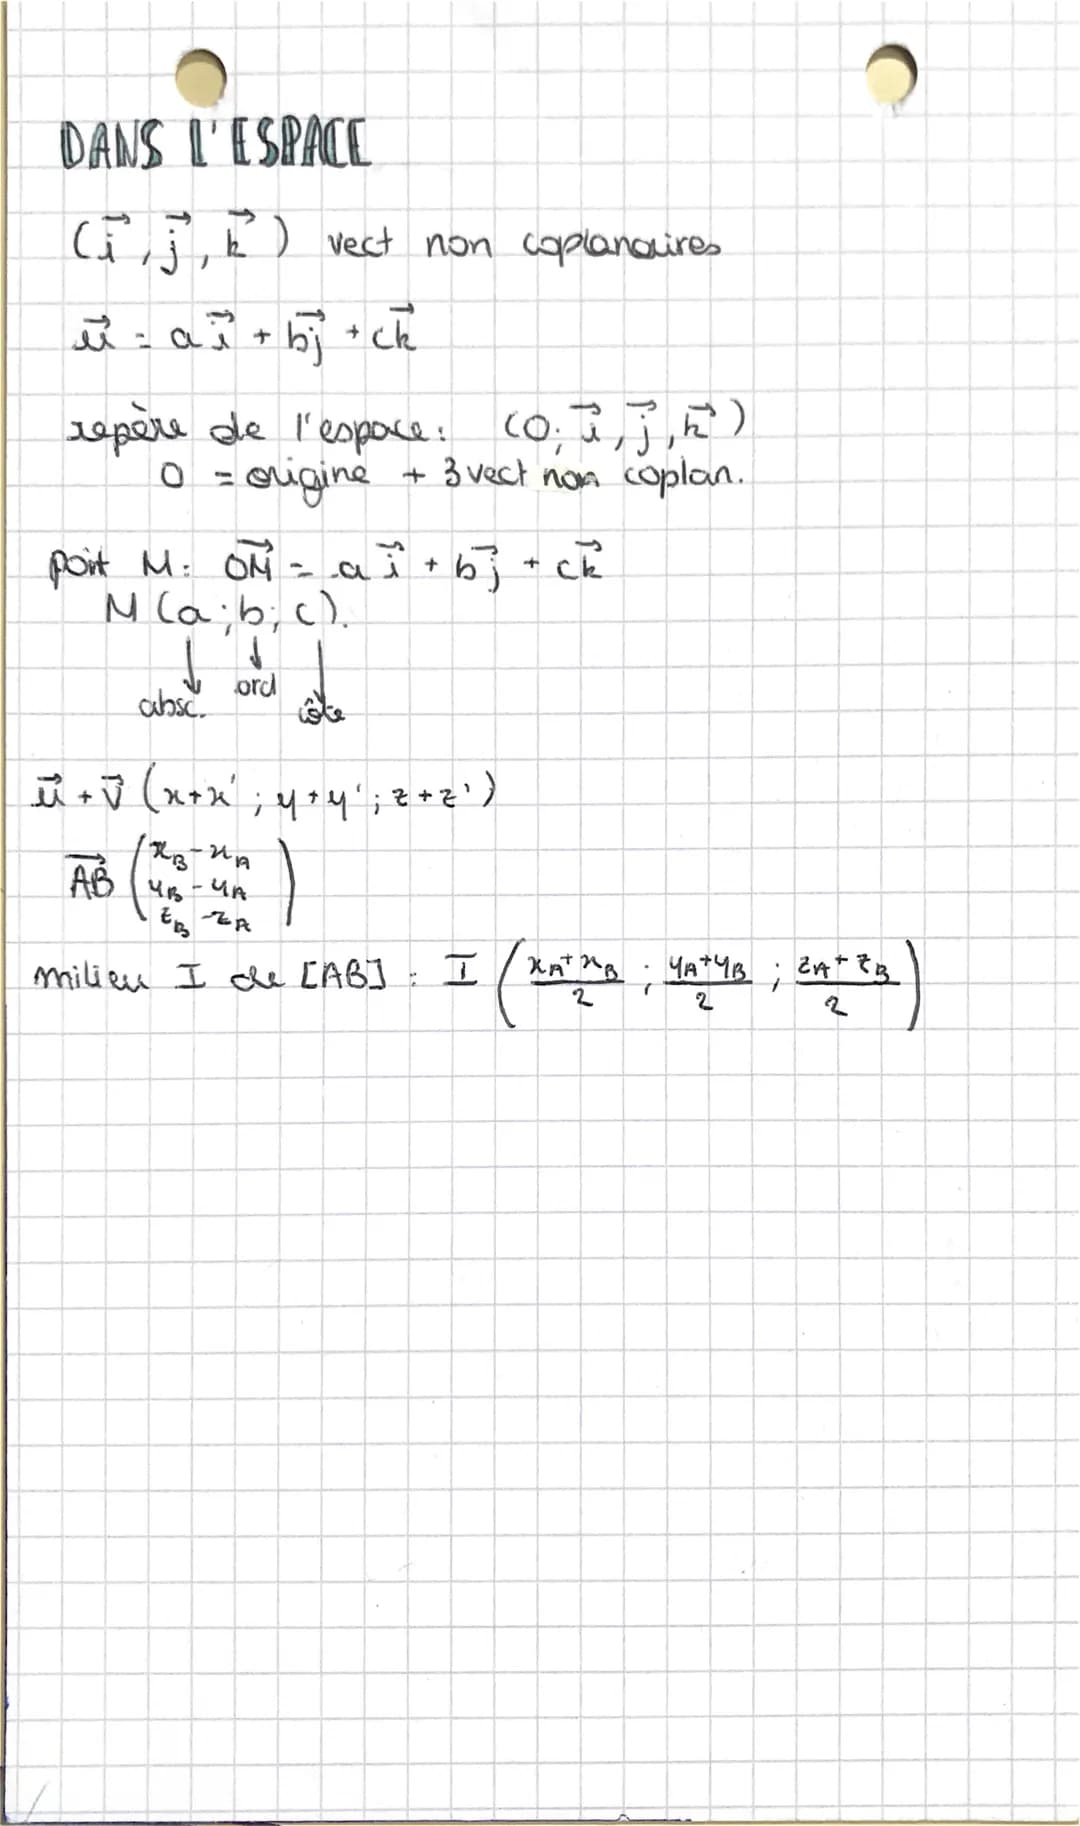 DANS L'ESPACE
(i⃗, j⃗, k⃗) vect non coplanaires
u⃗ = a i⃗ + b j⃗ + c k⃗
repère de l'espace: (O; i⃗, j⃗, k⃗)
O = origine + 3 vect non coplan.
point M: OM⃗ = a i⃗ + b j⃗ + c k⃗
M (a; b; c).
↓ ↓ ↓
absc. ord côte
u⃗ + v⃗ (x+x'; y+y'; z+z')
AB⃗ (x_B - x_A
y_B - y_A
z_B - z_A)
milieu I de [AB] : I ((x_A + x_B)/2 ; (y_A + y_B)/2 ; (z_A + z_B)/2)